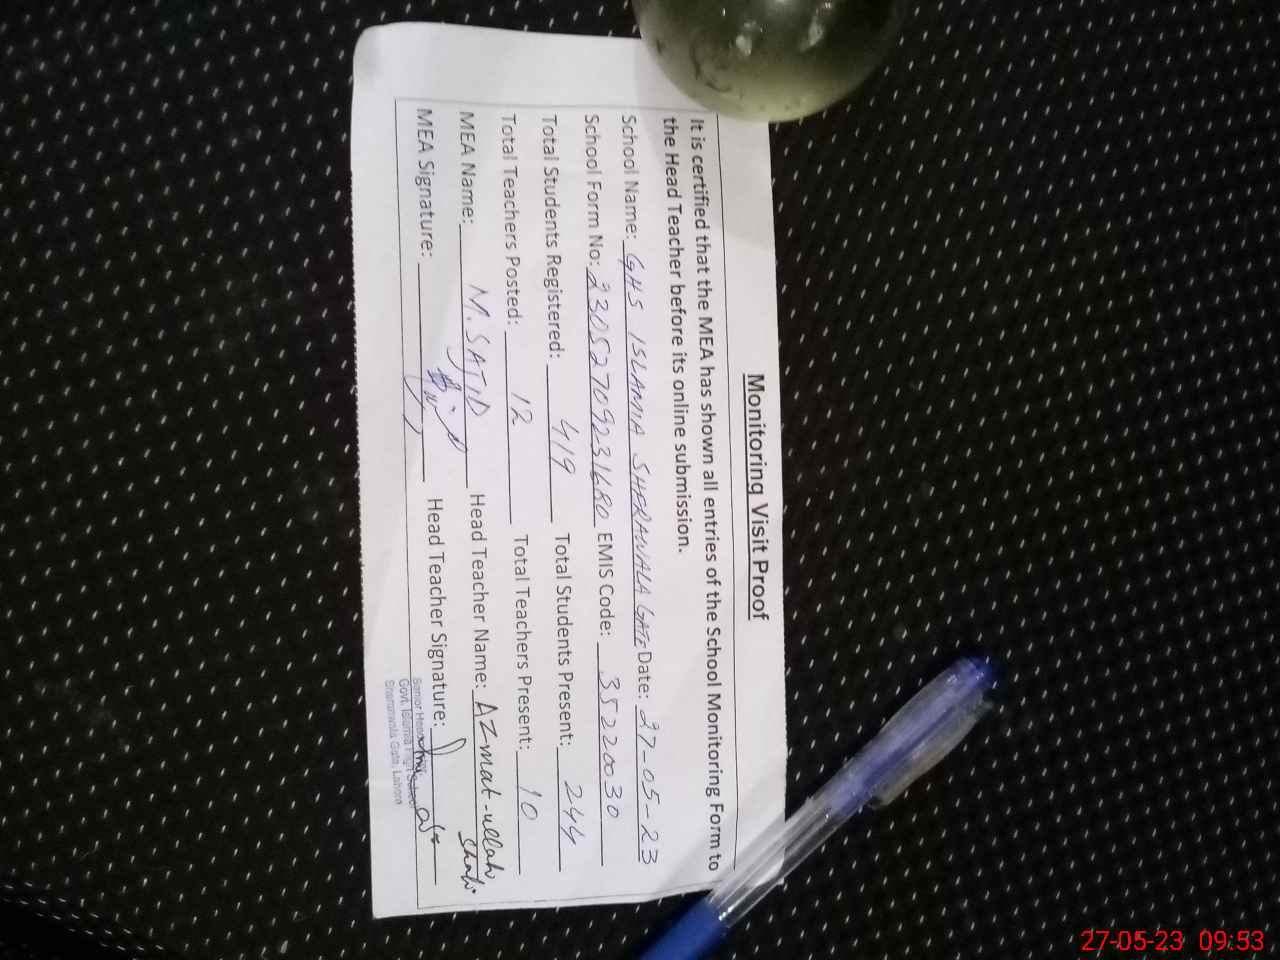 Monitoring Visit Proof
It is certified that the MEA has shown all entries of the School Monitoring Form to
the Head Teacher before its online submission.
School Name: GHS ISLAMIA SHERANWALA GATE Date: 27-05-23
School Form No: 23052709231680 EMIS Code: 35220030
Total Students Registered: 419 Total Students Present: 244
Total Teachers Posted: 12 Total Teachers Present: 10
MEA Name: M. SAJID Head Teacher Name: AZmat-ullah Shah
MEA Signature: Head Teacher Signature:
Senior Head
Govt. Islamia High School
Sheranwala Gate, Lahore
27-05-23 09:53